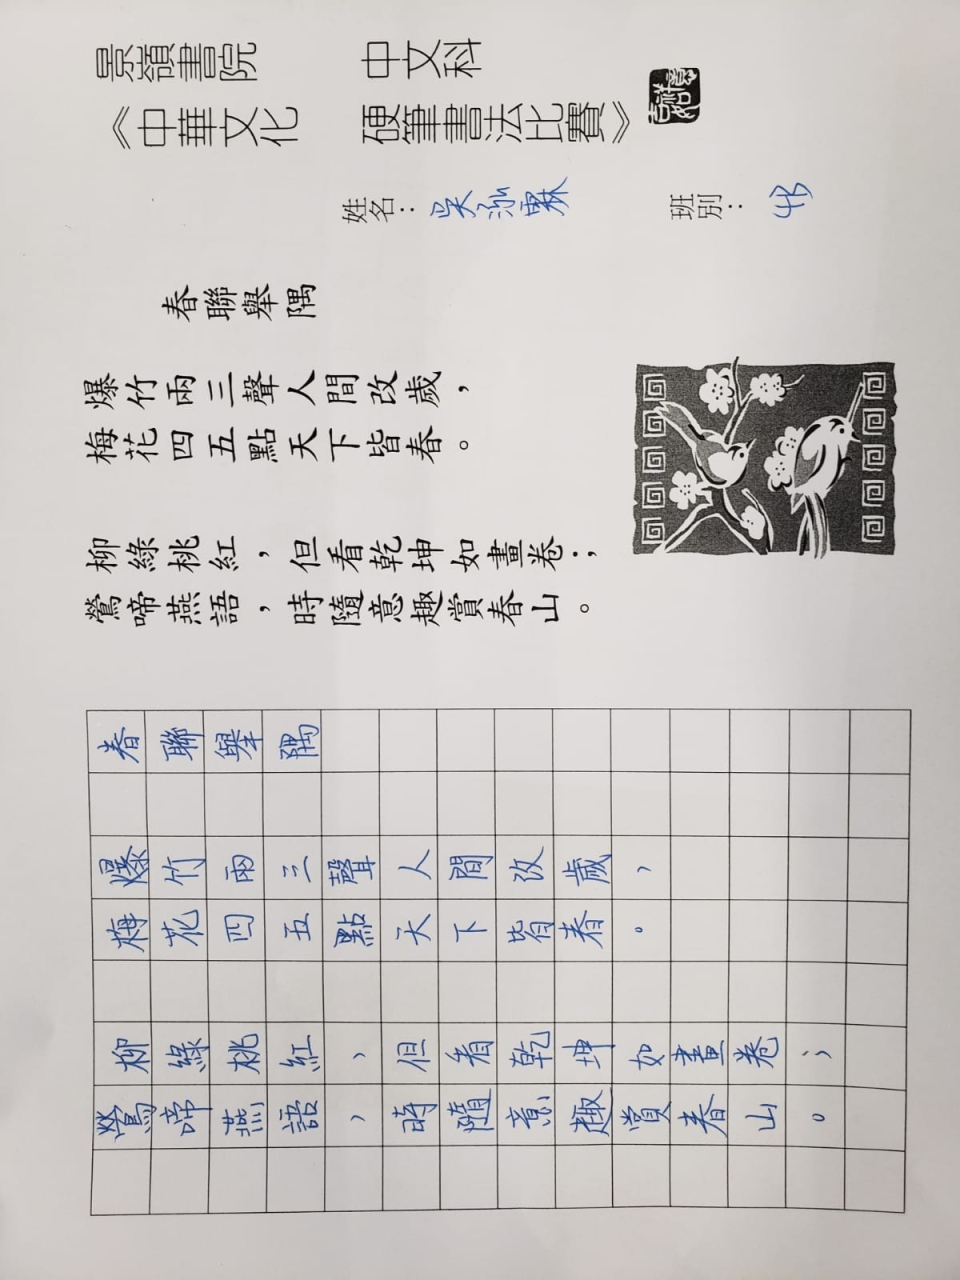 景嶺書院 中文科
《中華文化 硬筆書法比賽》
姓名：吳泳霖 班別：4B
春聯舉隅
爆竹兩三聲人間改歲，
梅花四五點天下皆春。
柳綠桃紅，但看乾坤如畫卷；
鶯啼燕語，時隨意趣賞春山。
春聯舉隅
爆竹兩三聲人間改歲，
梅花四五點天下皆春。
柳綠桃紅，但看乾坤如畫卷；
鶯啼燕語，時隨意趣賞春山。